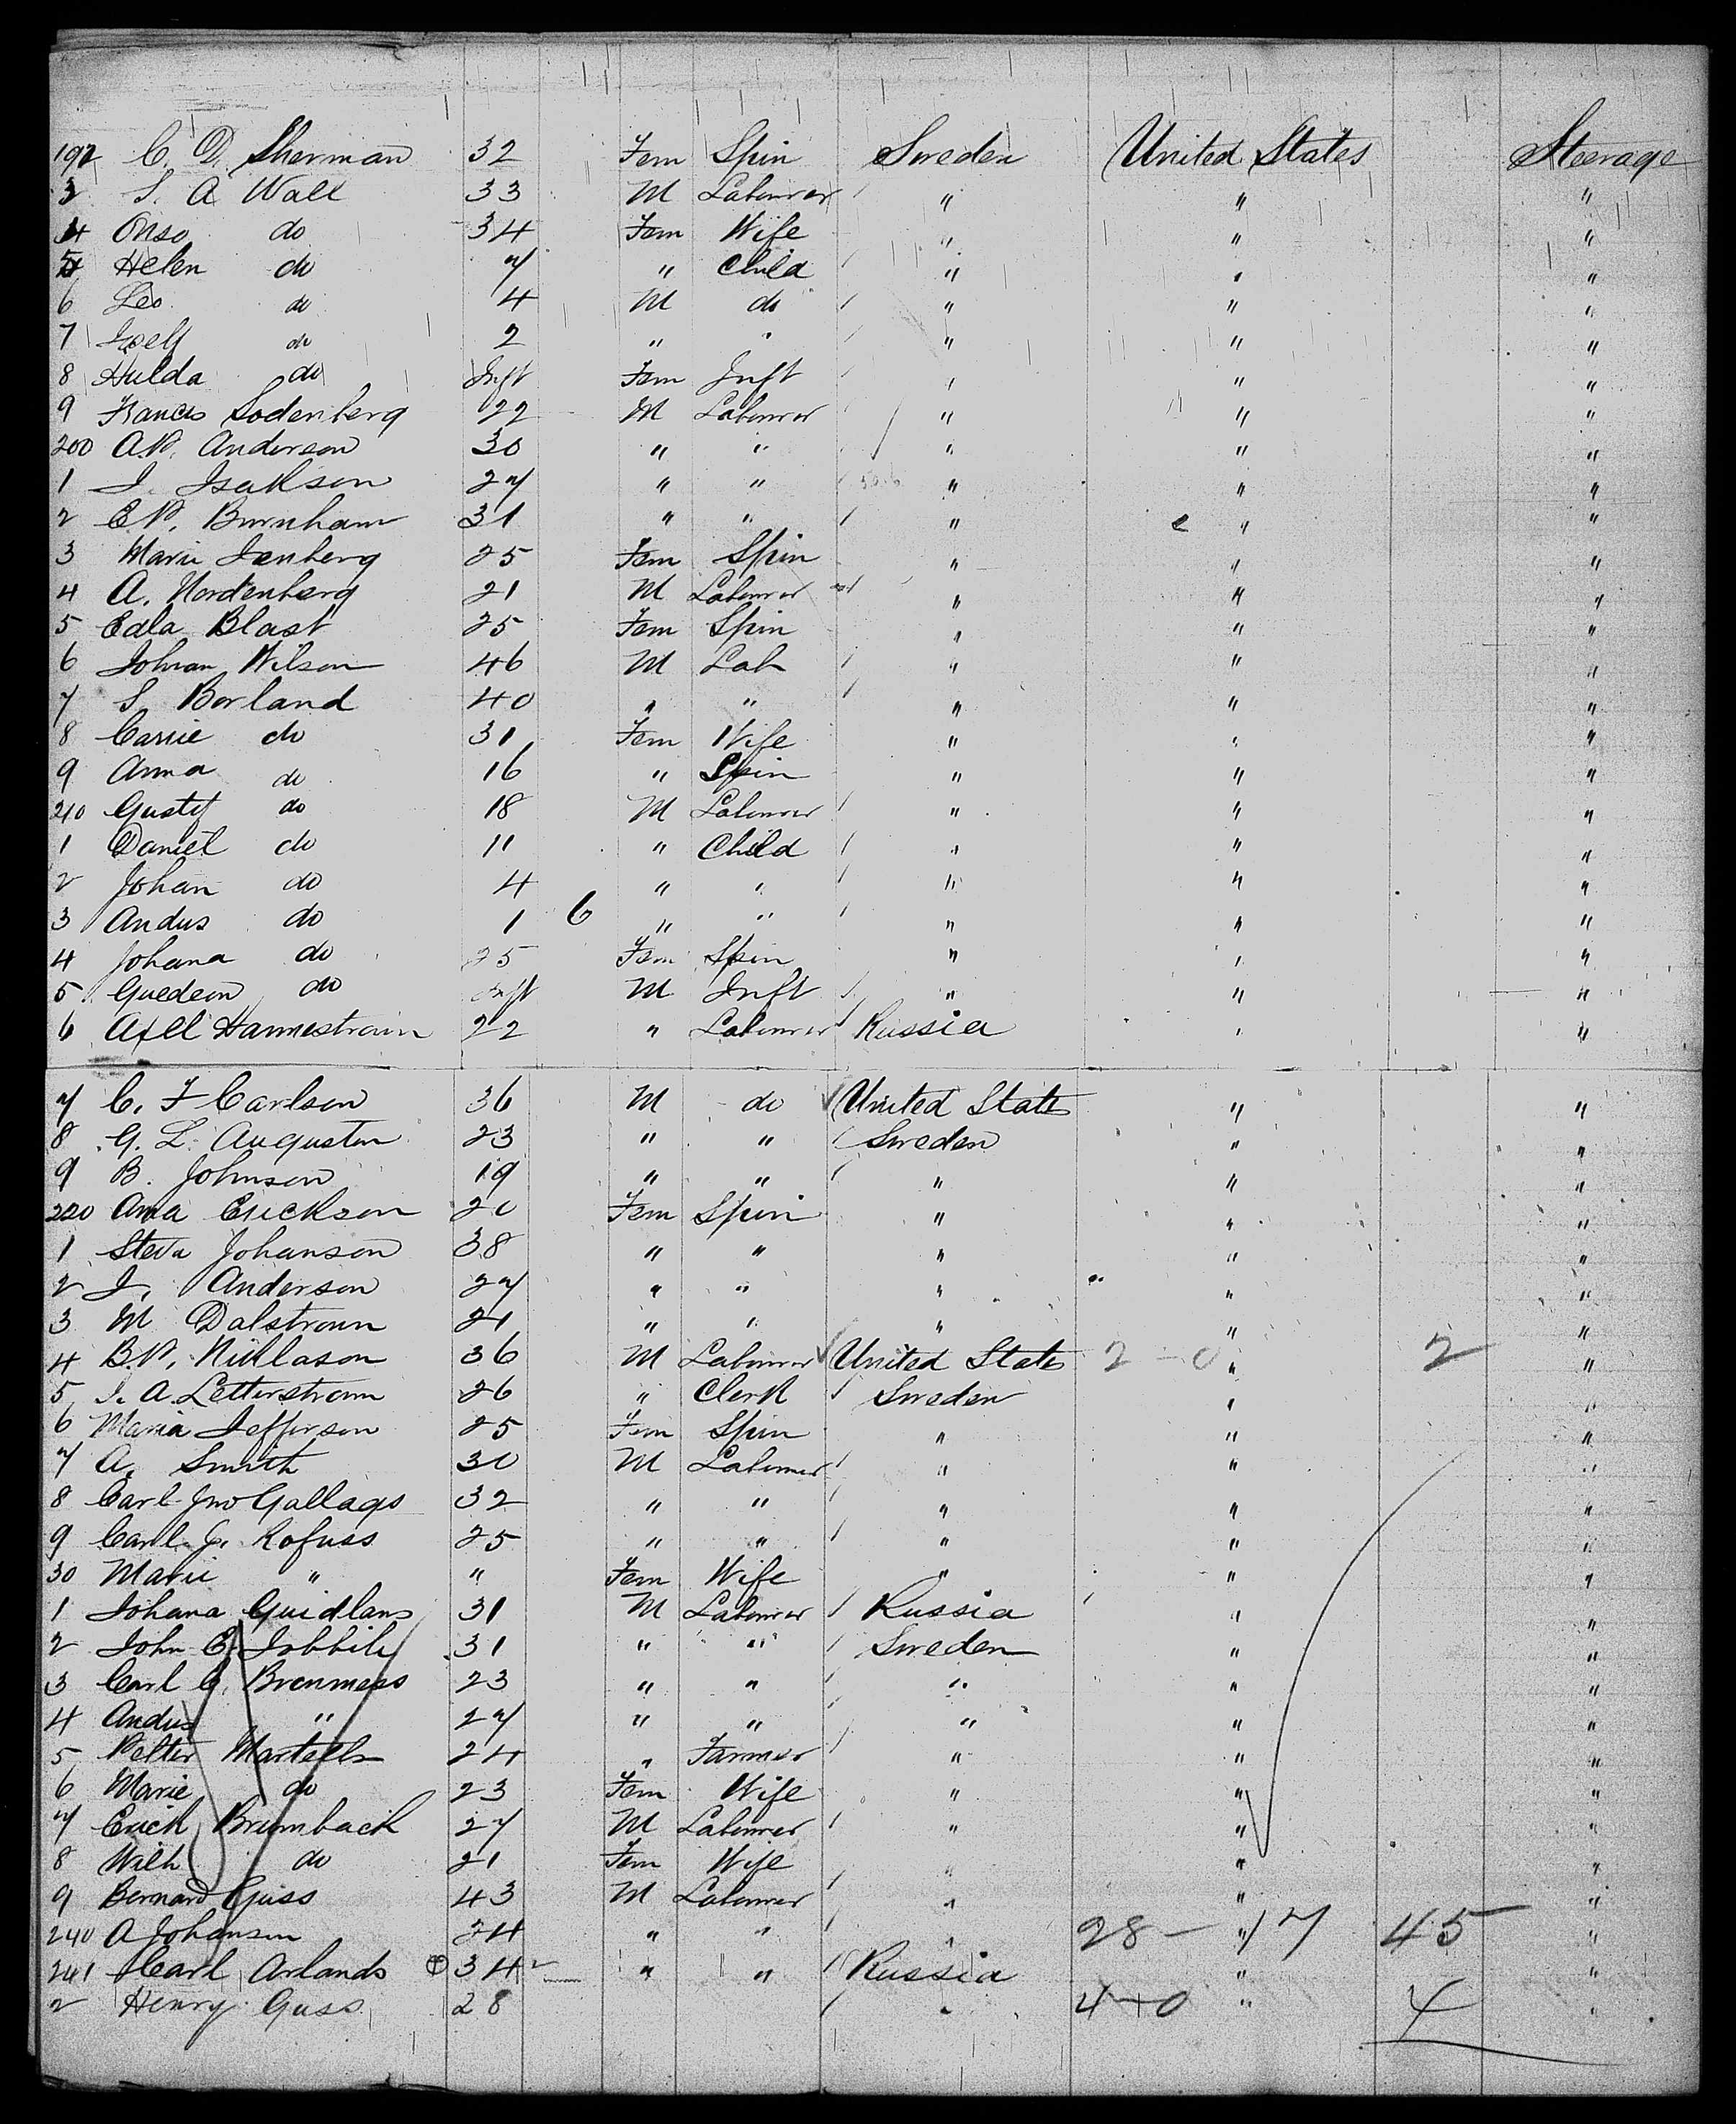 192 C. D. Sherman 32 Fem Spin Sweden United States Steerage
3 S. A Wall 33 M Labourer " " "
4 Onso do 34 Fem Wife " " "
5 Helen do 7 " Child " " "
6 Leo do 4 M do " " "
7 do 2 " " " " "
8 Hulda do Inft Fem Inft " " "
9 Francis Sodenberg 22 M Labourer " " "
200 A.P. Anderson 30 " " " " "
1 I. Isakson 27 " " " " "
2 E.P. Burnham 31 " " " " "
3 Marie Isenberg 25 Fem Spin " " "
4 A. Nordenberg 21 M Labourer " " "
5 Edla Blast 25 Fem Spin " " "
6 Johan Wilson 46 M Lab " " "
7 S. Borland 40 " " " " "
8 Carrie do 31 Fem Wife " " "
9 Anna do 16 " Spin " " "
210 Gustf do 18 M Labourer " " "
1 Daniel do 11 " Child " " "
2 Johan do 4 " " " " "
3 Andus do 1 6 " " " " "
4 Johana do 25 Fem Spin " " "
5 Guedeon do Inft M Inft " " "
6 Axel Hannestrom 22 " Labourer Russia " "
7 C. F Carlson 36 M do United States " "
8 G. L. Auguston 23 " " Sweden " "
9 B. Johnson 19 " " " " "
220 Ana Erickson 20 Fem Spin " " "
1 Steva Johanson 38 " " " " "
2 I. Anderson 27 " " " " "
3 M Dalstroum 21 " " " " "
4 B.P. Nicklason 36 M Labourer United States 2 - 0 " 2 "
5 I. A. Letterstrom 26 " Clerk Sweden " "
6 Maria Jefferson 25 Fem Spin " " "
7 A. Smith 30 M Labourer " " "
8 Carl Jno Gallags 32 " " " " "
9 Carl J. Rofuss 25 " " " " "
30 Marie " " Fem Wife " " "
1 Johana Guidlans 31 M Labourer Russia " "
2 John E. Jobbile 31 " " Sweden " "
3 Carl C. Brenmess 23 " " " " "
4 Andus " 27 " " " " "
5 Petter Martells 24 " Farmer " " "
6 Marie do 23 Fem Wife " " "
7 Erick Brumback 27 M Labourer " " "
8 Wilh do 21 Fem Wife " " "
9 Bernard Guss 43 M Labourer " " "
240 A Johanson 24 " " " 28 - 17 " 45 "
241 Carl Arlands 34 " " Russia " "
2 Henry Guss 28 " 4 - 0 " 4 "